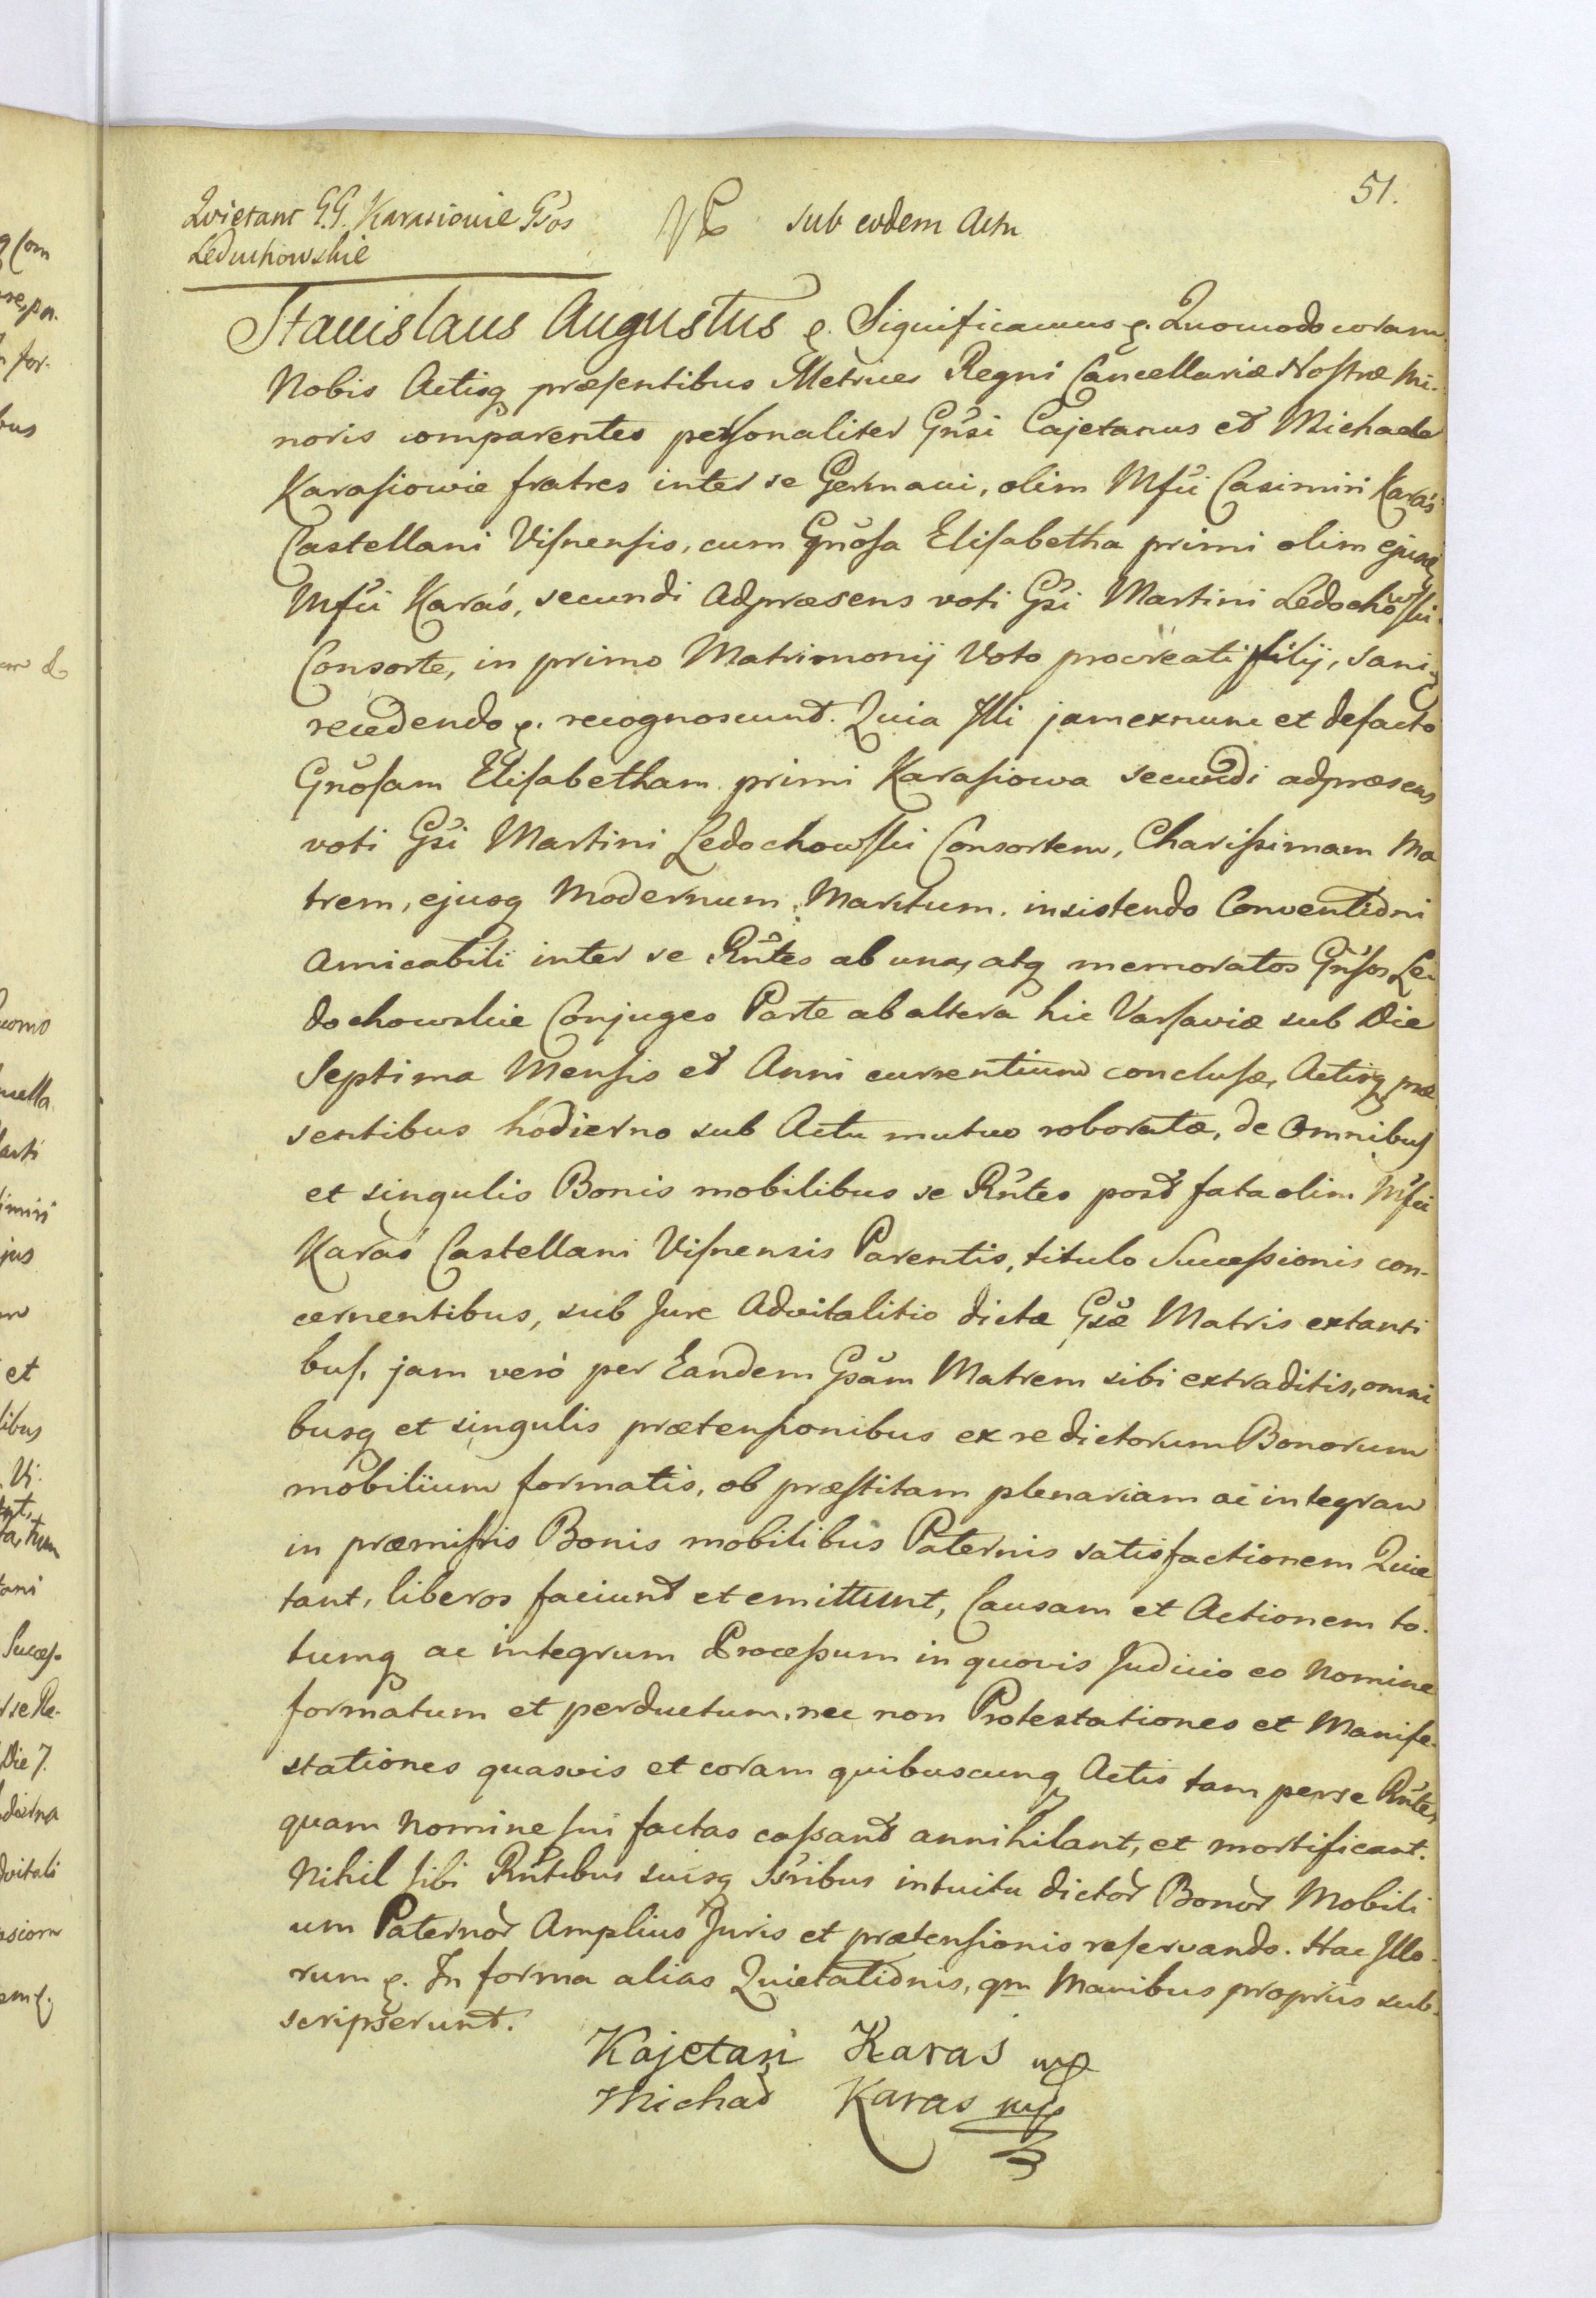 51.
Quietant G.G. Karasiowie Gsos
Leduchowskie
sub eodem Actu
Stanislaus Augustus &. Significamus &. Quomodo coram
Nobis Actisq præsentibus Metrices Regni Cancellariæ Nostræ Mi-
noris comparentes personaliter Gnsi Cajetanus et Michael
Karasiowie fratres inter se Germani, olim Mfci Casimiri Karaś
Castellani Visnensis, cum Gnosa Elisabetha primi olim ejusq
Mfci Karaś, secundi adpræsens voti Gsi Martini Ledochowski
Consorte, in primo Matrimonij Voto procreati filij, sani
recedendo &. recognoscunt. Quia Illi jam exnunc et defacto
Gnosam Elisabetham primi Karasiowa secundi adpræsens
voti Gsi Martini Ledochowski Consortem, Charissimam Ma
trem, ejusq Modernum Maritum. insistendo Conventioni
Amicabili inter se Rntes ab una, atq memoratos Gnsos Le
dochowskie Conjuges Parte ab altera hic Varsaviæ sub Die
Septima Mensis et Anni currentium conclusæ, Actisq præ
sentibus hodierno sub Actu mutuo roboratæ, de omnibus
et singulis Bonis mobilibus se Rntes post fata olim Mfci
Karaś Castellani Visnensis Parentis, titulo Successionis con-
cernentibus, sub Jure Advitalitio dictæ Gsæ Matris extanti
bus, jam verò per Eandem Gsam Matrem sibi extraditis, omni
busq et singulis prætensionibus ex re dictorum Bonorum
mobilium formatis, ob præstitam plenariam ac integram
in præmissis Bonis mobilibus Paternis satisfactionem Quie
tant, liberos faciunt et emittunt, Causam et Actionem to-
tumq ac integrum Processum in quovis Judicio eo nomine
formatum et perductum, nec non Protestationes et Manife-
stationes quasvis et coram quibuscunq Actis tam per se Rntes
quam Nomine sui factas cassant annihilant, et mortificant.
Nihil sibi Rntibus suisq Ssribus intuitu dictor Bonor Mobili
um Paternor Amplius Juris et prætensionis reservando. Hac Illo-
rum &. In forma alias Quietationis, qm Manibus propriis sub-
scripserunt.
Kajetan Karaś mp
Michał Karaś mp